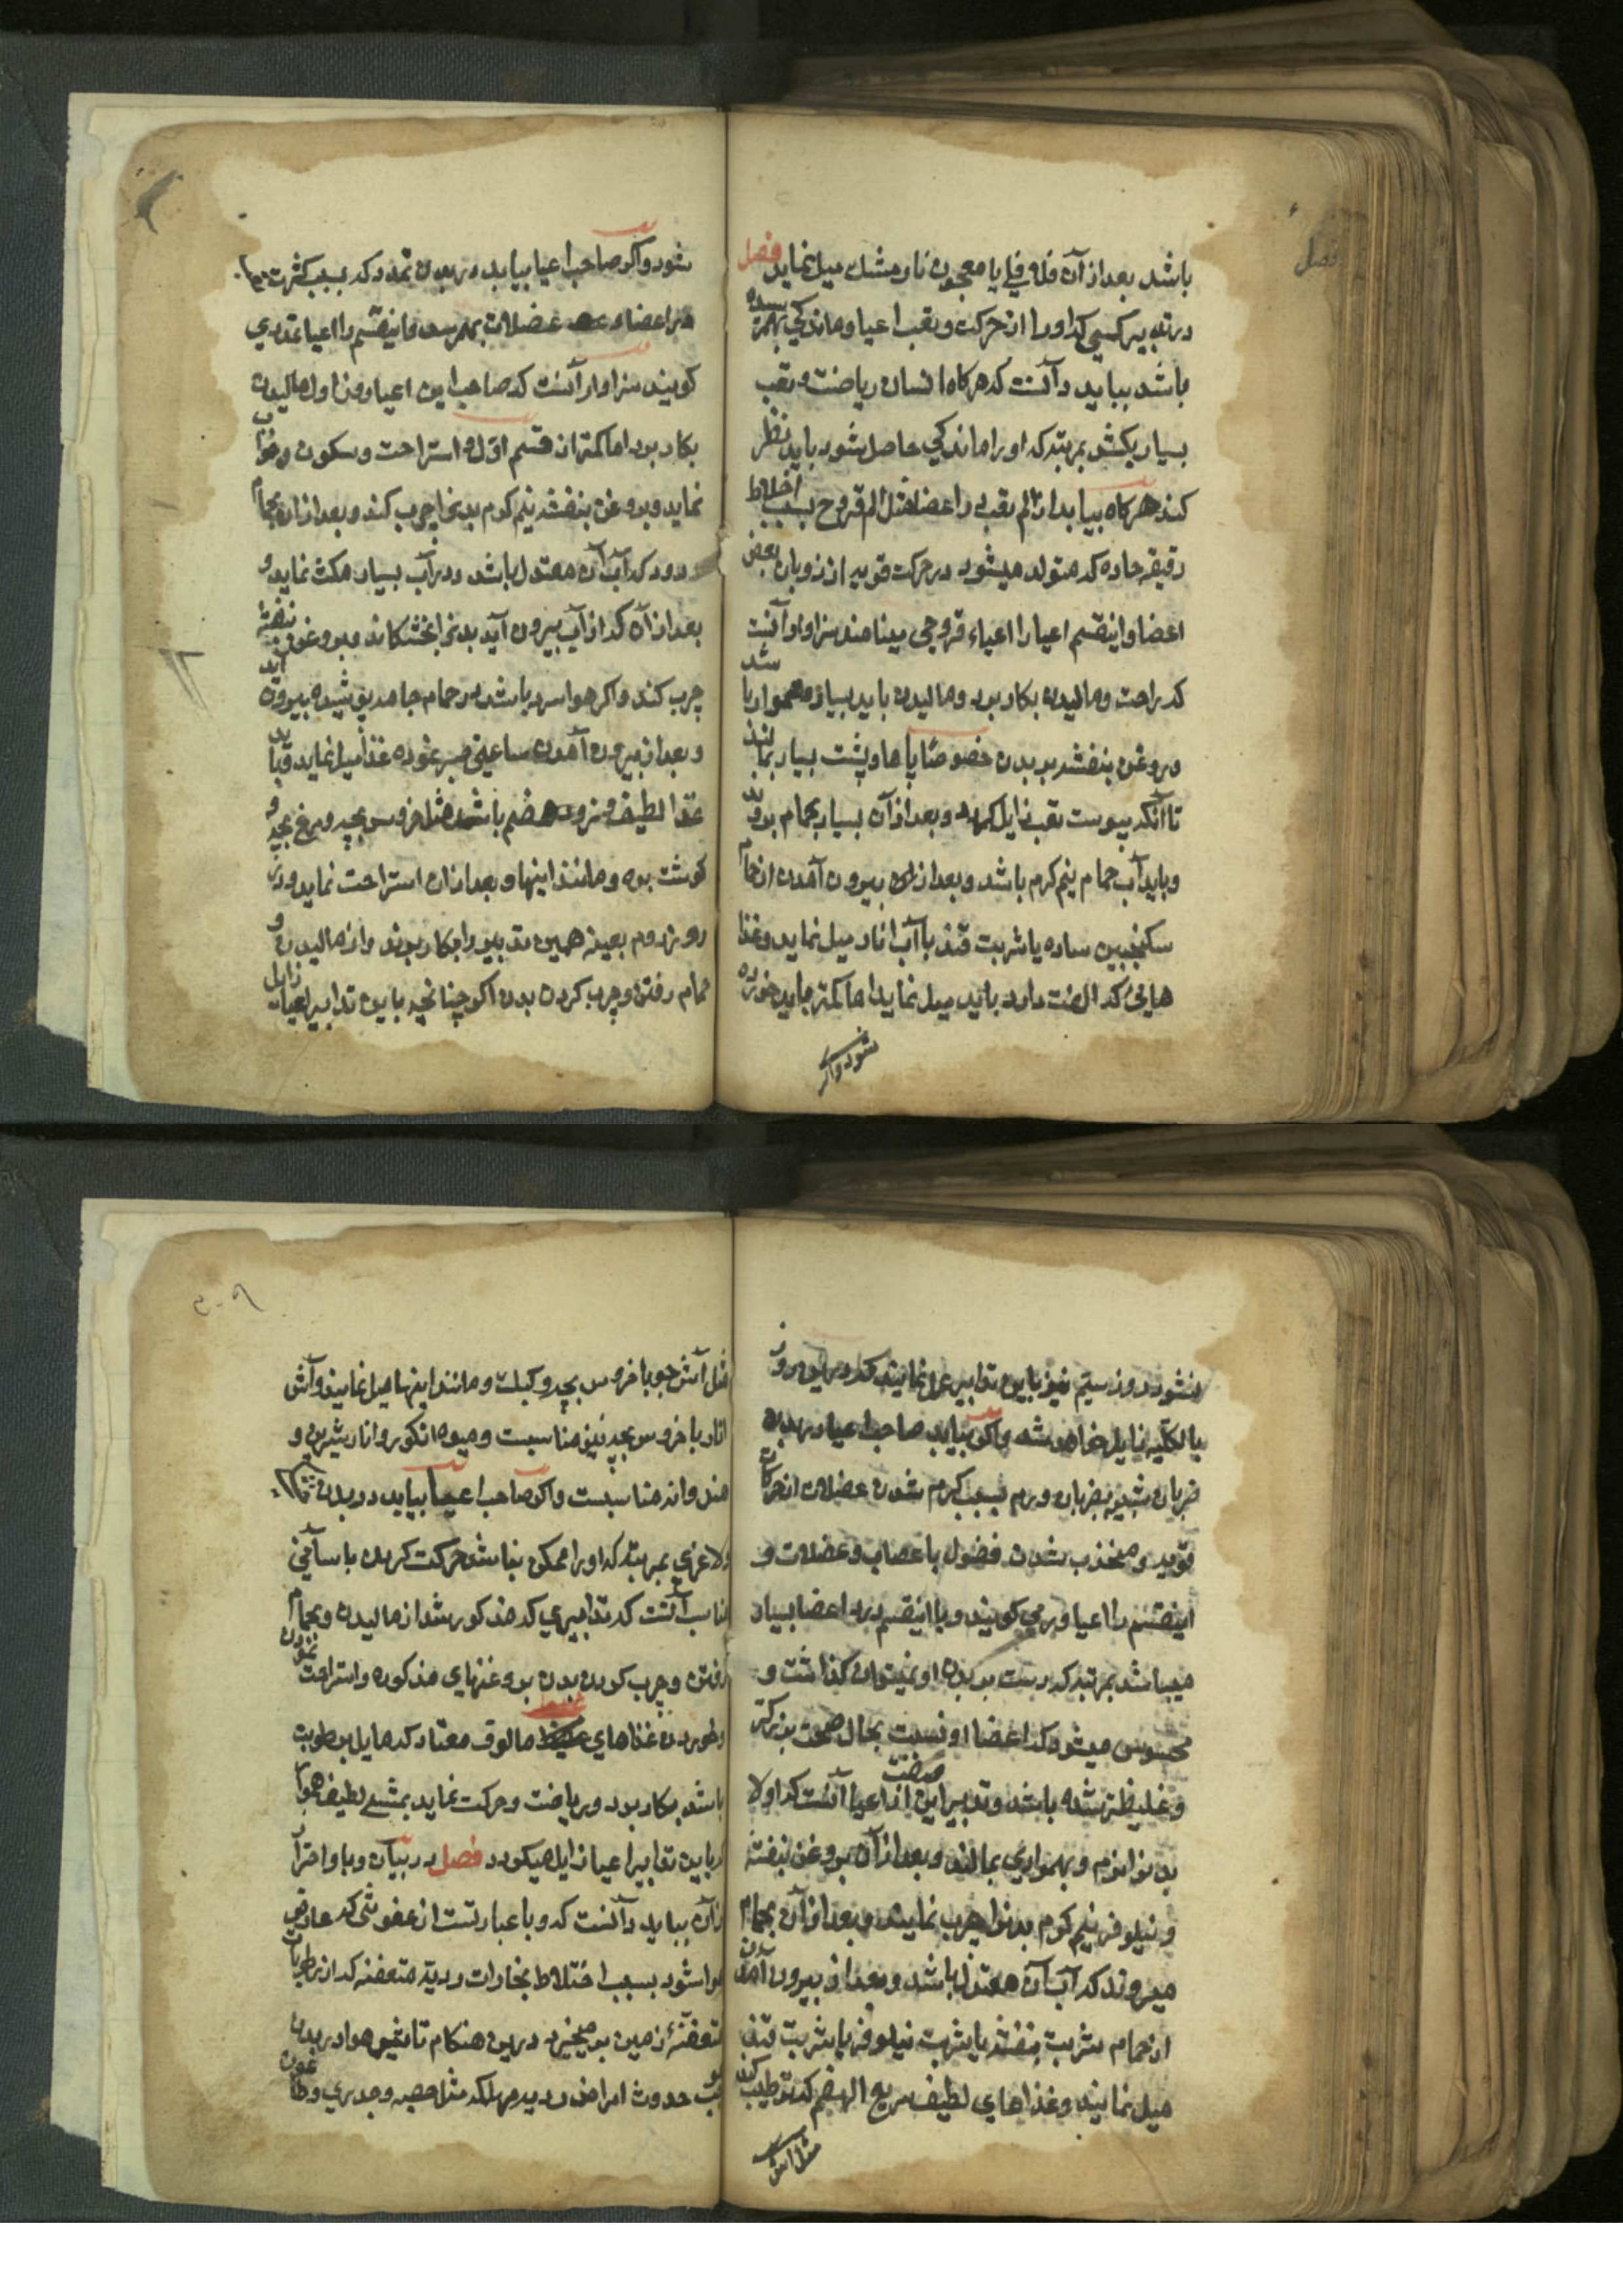 باشد بعد از آن فلافلی یا معجون نارمشک میل نماید فصل
در تدبیر کسی که او را از حرکت و تعب اعیا و ماندکی بهمرسیده
باشد بباید دانست که هرکاه انسان ریاضت و تعب
بسیار بکشد بمرتبه که او را ماندکی حاصل شود باید نظر
کند هرکاه بیابد از الم تعب در اعضا مثل الم قروح بسبب اخلاط
رقیقه حاده که متولد میشود در حرکت قویه از ذوبان بعض
اعضا و اینقسم اعیا را اعیاء قروحی مینامند سزاوار آنست
که راحت و مالیدن بکار برد و مالیدن باید بسیار هموار باشد
و روغن بنفشه بر بدن خصوصا پاها و پشت بسیار بمالند
تا آنکه یبوست تعب زایل کردد و بعد از آن بسیار بحمام برود
و باید آب حمام نیم کرم باشد و بعد از بیرون آمدن از حمام
سکنجبین ساده یا شربت قند با آب انار میل نماید و غذا
هائی که الفت دارد باید میل نماید اما کمتر باید خورده
شود و اکر
شود و اکر صاحب اعیا بیابد در بدن تمدد که بسبب کثرت
در اعضا و عضلات بهمرسد و اینقسم را اعیا تمددی
کویند سزاوار آنست که صاحب این اعیا وزن اول مالیدن
بکار برد اما کمتر از قسم اول و استراحت و سکون و خواب
نماید و بروغن بنفشه نیم کرم بدنرا چرب کند و بعد از آن بحمام
رود که آب آن معتدل باشد و در آب بسیار مکث نماید و
بعد از آن که از آب بیرون آید بدنرا خشکاند و بروغن بنفشه
چرب کند و اکر هوا سرد باشد در حمام جامه پوشیده بیرون آید
و بعد از بیرون آمدن ساعتی صبر نموده غذا میل نماید و باید
غذا لطیف و زود هضم باشد مثل خروس بچه و مرغ بچه و
کوشت بره و مانند اینها و بعد از آن استراحت نماید و در
روز دوم بعینه همین تدبیر را بکار برند و از مالیدن و
حمام رفتن و چرب کردن بدن اکر چنانچه باین تدابیر اعیا زایل
نشود روز سیم نیز باین تدابیر عمل نمایند که درین روز
بالکلیه زایل خواهد شد و اکر بیابد صاحب اعیا در بدن
ضربان شبیه بضربان ورم بسبب کرم شدن عضلات از حرکات
قویه و منجذب شدن فضول باعصاب و عضلات و
اینقسم را اعیا ورمی کویند و با اینقسم درد اعضا بسیار
میباشد بمرتبه که دست بر بدن او نمیتوان کذاشت و
محسوس میشود که اعضا او نسبت بحال صحت بزرکتر
و غلیظتر شده باشد و تدبیر این صنف از اعیا آنست که اولا
بدنرا نرم و بهمواری بمالند و بعد از آن بروغن بنفشه
و نیلوفر نیم کرم بدنرا چرب نمایند و بعد از آن بحمام
میروند که آب آن معتدل باشد و بعد از بیرون آمدن
از حمام شربت بنفشه یا شربت نیلوفر یا شربت قند
میل نمایند و غذاهای لطیف سریع الهضم که ترطیب کند
مثل آش
مثل آش جو با خروس بچه و کبک و مانند اینها میل نمایند و آش
انار با خروس بچه نیز مناسبست و میوه انکور و انار شیرین و
هندوانه مناسبست و اکر صاحب اعیا بیابد در بدن
و لاغری بمرتبه که او را ممکن نباشد حرکت کردن باسانی
مناسب آنست که تدابیری که مذکور شد از مالیدن و بحمام
رفتن و چرب کردن بدن بروغنهای مذکوره و استراحت نمودن
و خوردن غذاهای مالوف معتاد که مایل برطوبت
باشد بکار برد و ریاضت و حرکت نماید بمشی لطیف هموار
که باین تدابیر اعیا زایل میکردد فصل در بیان وبا و احتراز
از آن بباید دانست که وبا عبارتست از عفونتی که عارض
هوا شود بسبب اختلاط بخارات ردیه متعفنه که از رطوبات
متعفنهٔ زمین برمیخیزد درین هنکام تاثیر هوا در بدن
سبب حدوث امراض ردیه مهلکه مثل حصبه و جدری و طاعون